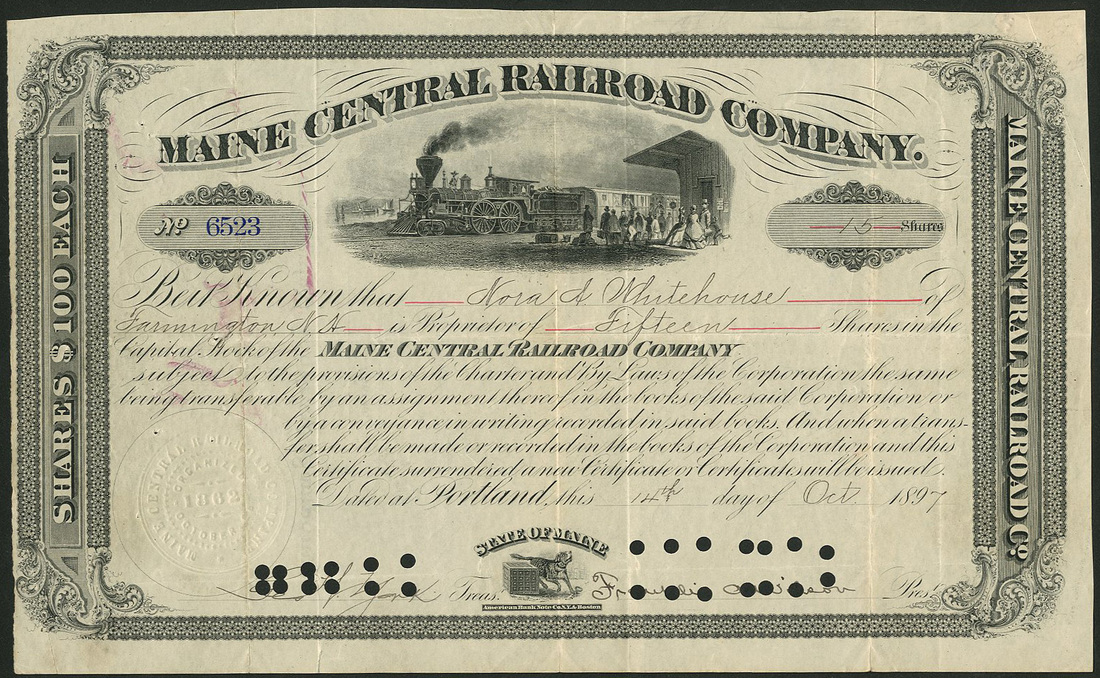 MAINE CENTRAL RAILROAD COMPANY.
No 6523
15 Shares
SHARES $100 EACH
MAINE CENTRAL RAILROAD Co.
Be it Known that Nora A Whitehouse of
Farmington N.H. is Proprietor of Fifteen Shares in the
Capital Stock of the MAINE CENTRAL RAILROAD COMPANY
subject to the provisions of the Charter and By Laws of the Corporation the same
being transferable by an assignment thereof in the books of the said Corporation or
by a conveyance in writing recorded in said books. And when a trans-
fer shall be made or recorded in the books of the Corporation and this
Certificate surrendered a new Certificate or Certificates will be issued.
Dated at Portland, this 14th day of Oct 1897
MAINE CENTRAL RAILROAD COMPANY
ORGANIZED
1862
OCTOBER
STATE OF MAINE
Treas.
Pres.
American Bank Note Co. N.Y. & Boston